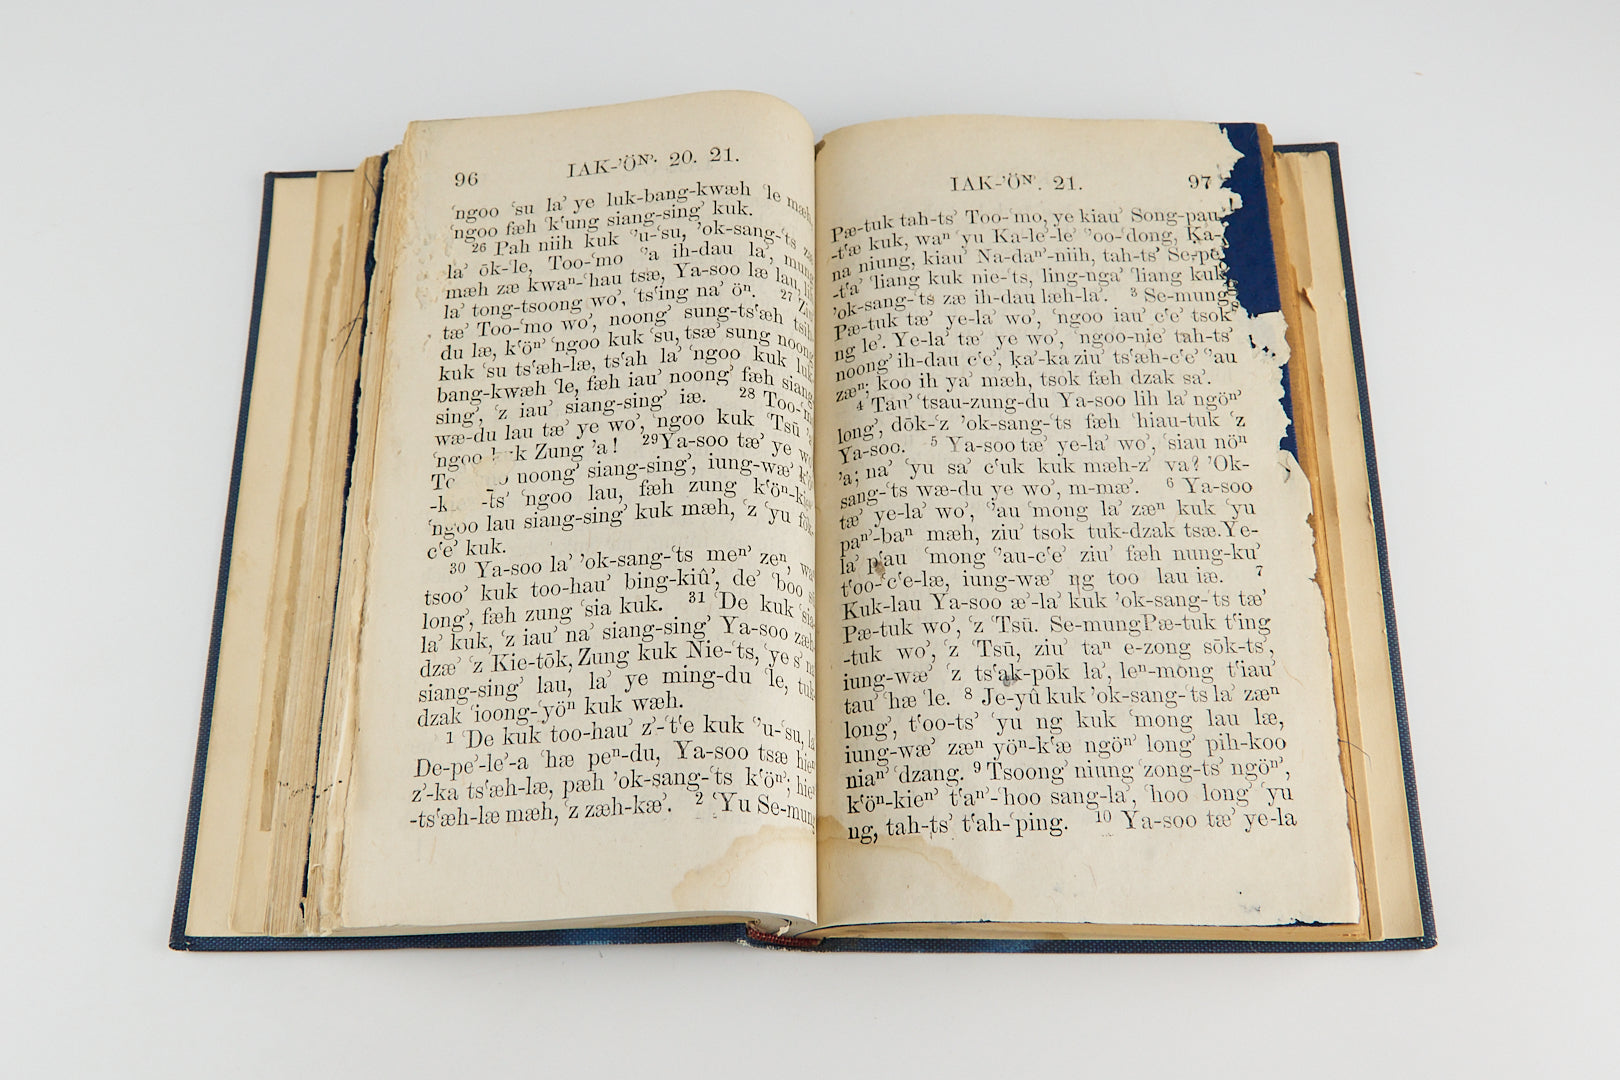 96
IAK-ʼÖᴺʾ· 20. 21.
ʿngoo ʿsu laʾ ye luk-bang-kwæh ʿle
ʿngoo fæh ʿkʿung siang-singʾ kuk.
26 Pah niih kuk ʿʼu-ʿsu, ʼok-sang-ʿts
laʾ ōk-ʿle, Too-ʿmo ʿʼa ih-dau laʾ,
mæh zæ kwaⁿ-ʿhau tsæ, Ya-soo læ lau,
laʾ tong-tsoong woʾ, ʿtsʿing naʾ öⁿ. 27
tæʾ Too-ʿmo woʾ, noongʾ sung-tsʿæh
du læ, kʿöⁿʾ ʿngoo kuk ʿsu, tsæʾ sung noong
kuk ʿsu tsʿæh-læ, tsʿah laʾ ʿngoo kuk
bang-kwæh ʿle, fæh iauʾ noongʾ fæh siang-
singʾ, ʿz iauʾ siang-singʾ iæ. 28 Too-
wæ-du lau tæʾ ye woʾ, ʿngoo kuk ʿTsū
ʿngoo kuk Zung ʿa! 29Ya-soo tæʾ ye
noongʾ siang-singʾ, iung-wæʾ
-tsʾ ʿngoo lau, fæh zung
ʿngoo lau siang-singʾ kuk mæh, ʿz ʿyu
cʿeʾ kuk.
30 Ya-soo laʾ ʼok-sang-ʿts meⁿʾ zeⁿ,
tsooʾ kuk too-hauʾ bing-kiûʾ, deʾ ʿboo
longʾ, fæh zung ʿsia kuk. 31 ʿDe kuk
laʾ kuk, ʿz iauʾ naʾ siang-singʾ Ya-soo
dzæʾ ʿz Kie-tōk, Zung kuk Nie-ʿts,
siang-singʾ lau, laʾ ye ming-du ʿle,
dzak ʿioong-ʿyöⁿ kuk wæh.
1 ʿDe kuk too-hauʾ zʾ-tʿe kuk ʿʼu-ʿsu,
De-peʾ-leʾ-a ʿhæ peⁿ-du, Ya-soo tsæ
zʾ-ka tsʿæh-læ, pæh ʼok-sang-ʿts kʿöⁿʾ;
-tsʿæh-læ mæh, ʿz zæh-kæʾ. 2 ʿYu Se-mung
IAK-ʼÖᴺʾ. 21.
97
Pæ-tuk tah-tsʾ Too-ʿmo, ye kiauʾ Song-pau
-tʿæ kuk, waⁿʾ ʿyu Ka-leʾ-leʾ ʿʼoo-ʿdong, Ka-
na niung, kiauʾ Na-daⁿʾ-niih, tah-tsʾ Se-pe
-tʿaʾ ʿliang kuk nie-ʿts, ling-ngaʾ ʿliang kuk
ʼok-sang-ʿts zæ ih-dau læh-laʾ. 3 Se-mung
Pæ-tuk tæʾ ye-laʾ woʾ, ʿngoo iauʾ cʿeʾ tsok
ng leʾ. Ye-laʾ tæʾ ye woʾ, ʿngoo-nieʾ tah-tsʾ
noongʾ ih-dau cʿeʾ, kaʾ-ka ziuʾ tsʿæh-cʿeʾ ʿʼau
zæⁿ; koo ih yaʾ mæh, tsok fæh dzak saʾ.
4 Tauʾ ʿtsau-zung-du Ya-soo lih laʾ ngöⁿʾ
longʾ, dōk-ʿz ʼok-sang-ʿts fæh ʿhiau-tuk ʿz
Ya-soo. 5 Ya-soo tæʾ ye-laʾ woʾ, ʿsiau nöⁿ
ʼa; naʾ ʿyu saʾ cʿuk kuk mæh-zʾ va? ʼOk-
sang-ʿts wæ-du ye woʾ, m-mæʾ. 6 Ya-soo
tæʾ ye-laʾ woʾ, ʿʼau ʿmong laʾ zæⁿ kuk ʿyu
paⁿʾ-baⁿ mæh, ziuʾ tsok tuk-dzak tsæ.Ye-
laʾ pʿau ʿmong ʿʼau-cʿeʾ ziuʾ fæh nung-kuʾ
tʿoo-ʿcʿe-læ, iung-wæʾ ng too lau iæ. 7
Kuk-lau Ya-soo æʾ-laʾ kuk ʼok-sang-ʿts tæʾ
Pæ-tuk woʾ, ʿz ʿTsū. Se-mungPæ-tuk tʿing
-tuk woʾ, ʿz ʿTsū, ziuʾ taⁿ e-zong sōk-tsʾ,
iung-wæʾ ʿz tsʿak-pōk laʾ, leⁿ-mong tʿiauʾ
tauʾ ʿhæ ʿle. 8 Je-yû kuk ʼok-sang-ʿts laʾ zæⁿ
longʾ, tʿoo-tsʾ ʿyu ng kuk ʿmong lau læ,
iung-wæʾ zæⁿ yöⁿ-kʿæ ngöⁿʾ longʾ pih-koo
niaⁿʾ ʿdzang. 9 Tsoongʾ niung ʿzong-tsʾ ngöⁿʾ,
kʿöⁿ-kienʾ tʿaⁿʾ-ʿhoo sang-laʾ, ʿhoo longʾ ʿyu
ng, tah-tsʾ tʿah-ʿping. 10 Ya-soo tæʾ ye-la